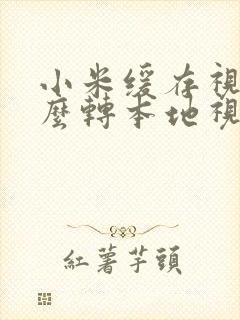 小米缓存視
麼轉本地視
紅薯芋頭